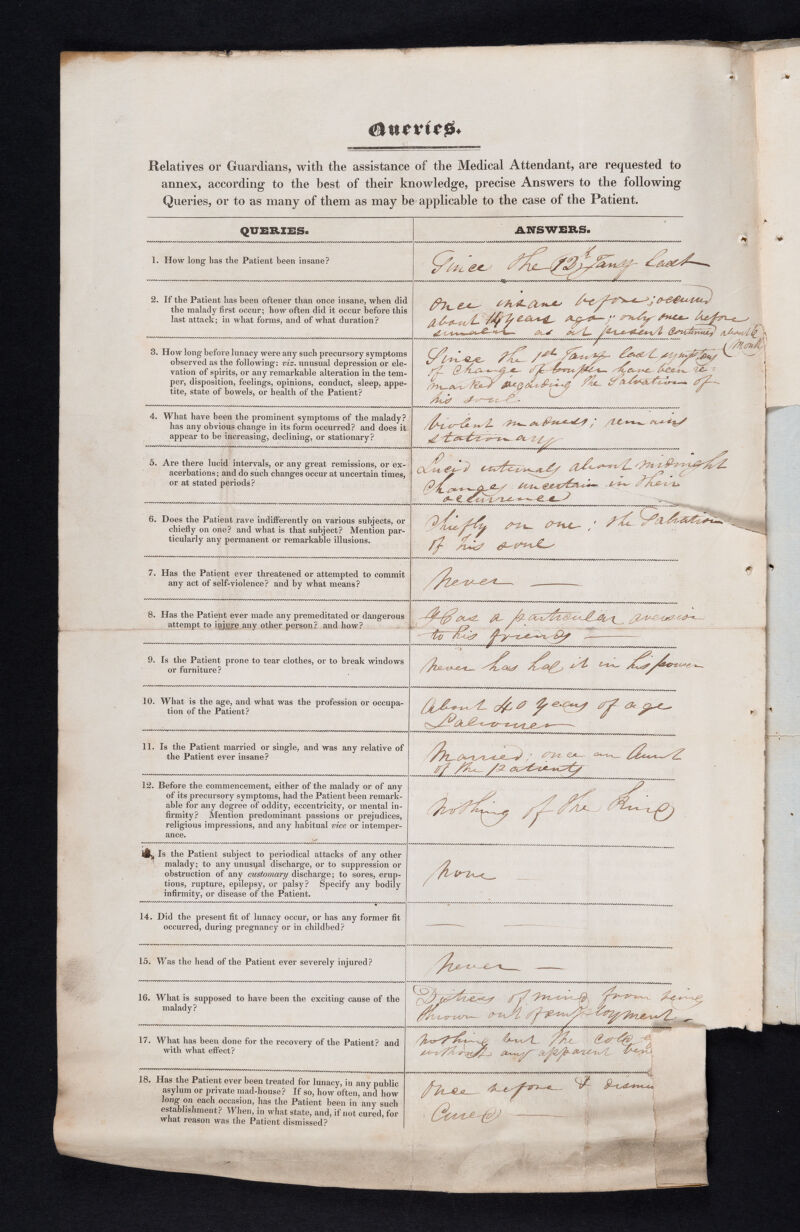 Queries.
Relatives or Guardians, with the assistance of the Medical Attendant, are requested to
annex, according to the best of their knowledge, precise Answers to the following
Queries, or to as many of them as may be applicable to the case of the Patient.
QUERIES.
ANSWERS.
1. How long has the Patient been insane?
Since the 12th Jany last
2. If the Patient has been oftener than once insane, when did
the malady first occur; how often did it occur before this
last attack; in what forms, and of what duration?
Once insane before; occurred
about 14 years ago; only once before
similar as at present continued about 6
Month
3. How long before lunacy were any such precursory symptoms
observed as the following: viz. unusual depression or ele-
vation of spirits, or any remarkable alteration in the tem-
per, disposition, feelings, opinions, conduct, sleep, appe-
tite, state of bowels, or health of the Patient?
Since the 1st Jany last symptoms
of change of temper have been re-
marked regarding the Salvation of
his soul.
4. What have been the prominent symptoms of the malady?
has any obvious change in its form occurred? and does it
appear to be increasing, declining, or stationary?
Violent madness; remains
stationary
5. Are there lucid intervals, or any great remissions, or ex-
acerbations; and do such changes occur at uncertain times,
or at stated periods?
Lucid intervals about midnight
Changes uncertain in their
occurrence
6. Does the Patient rave indifferently on various subjects, or
chiefly on one? and what is that subject? Mention par-
ticularly any permanent or remarkable illusions.
Chiefly on one; the Salvation
of his soul
7. Has the Patient ever threatened or attempted to commit
any act of self-violence? and by what means?
Never —
8. Has the Patient ever made any premeditated or dangerous
attempt to injure any other person? and how?
Has a particular aversion
to his friends —
9. Is the Patient prone to tear clothes, or to break windows
or furniture?
Never has had it in his power
10. What is the age, and what was the profession or occupa-
tion of the Patient?
About 40 years of age
Labourer
11. Is the Patient married or single, and was any relative of
the Patient ever insane?
Married; once an Aunt
of the patients
12. Before the commencement, either of the malady or of any
of its precursory symptoms, had the Patient been remark-
able for any degree of oddity, eccentricity, or mental in-
firmity? Mention predominant passions or prejudices,
religious impressions, and any habitual vice or intemper-
ance.
Nothing of the kind
Is the Patient subject to periodical attacks of any other
malady; to any unusual discharge, or to suppression or
obstruction of any customary discharge; to sores, erup-
tions, rupture, epilepsy, or palsy? Specify any bodily
infirmity, or disease of the Patient.
None
14. Did the present fit of lunacy occur, or has any former fit
occurred, during pregnancy or in childbed?
— —
15. Was the head of the Patient ever severely injured?
Never —
16. What is supposed to have been the exciting cause of the
malady?
Distress of mind from being
thrown out of employment
17. What has been done for the recovery of the Patient? and
with what effect?
Nothing but the cold
without any apparent
18. Has the Patient ever been treated for lunacy, in any public
asylum or private mad-house? If so, how often, and how
long on each occasion, has the Patient been in any such
establishment? When, in what state, and, if not cured, for
what reason was the Patient dismissed?
Once before & dismi
Cured —